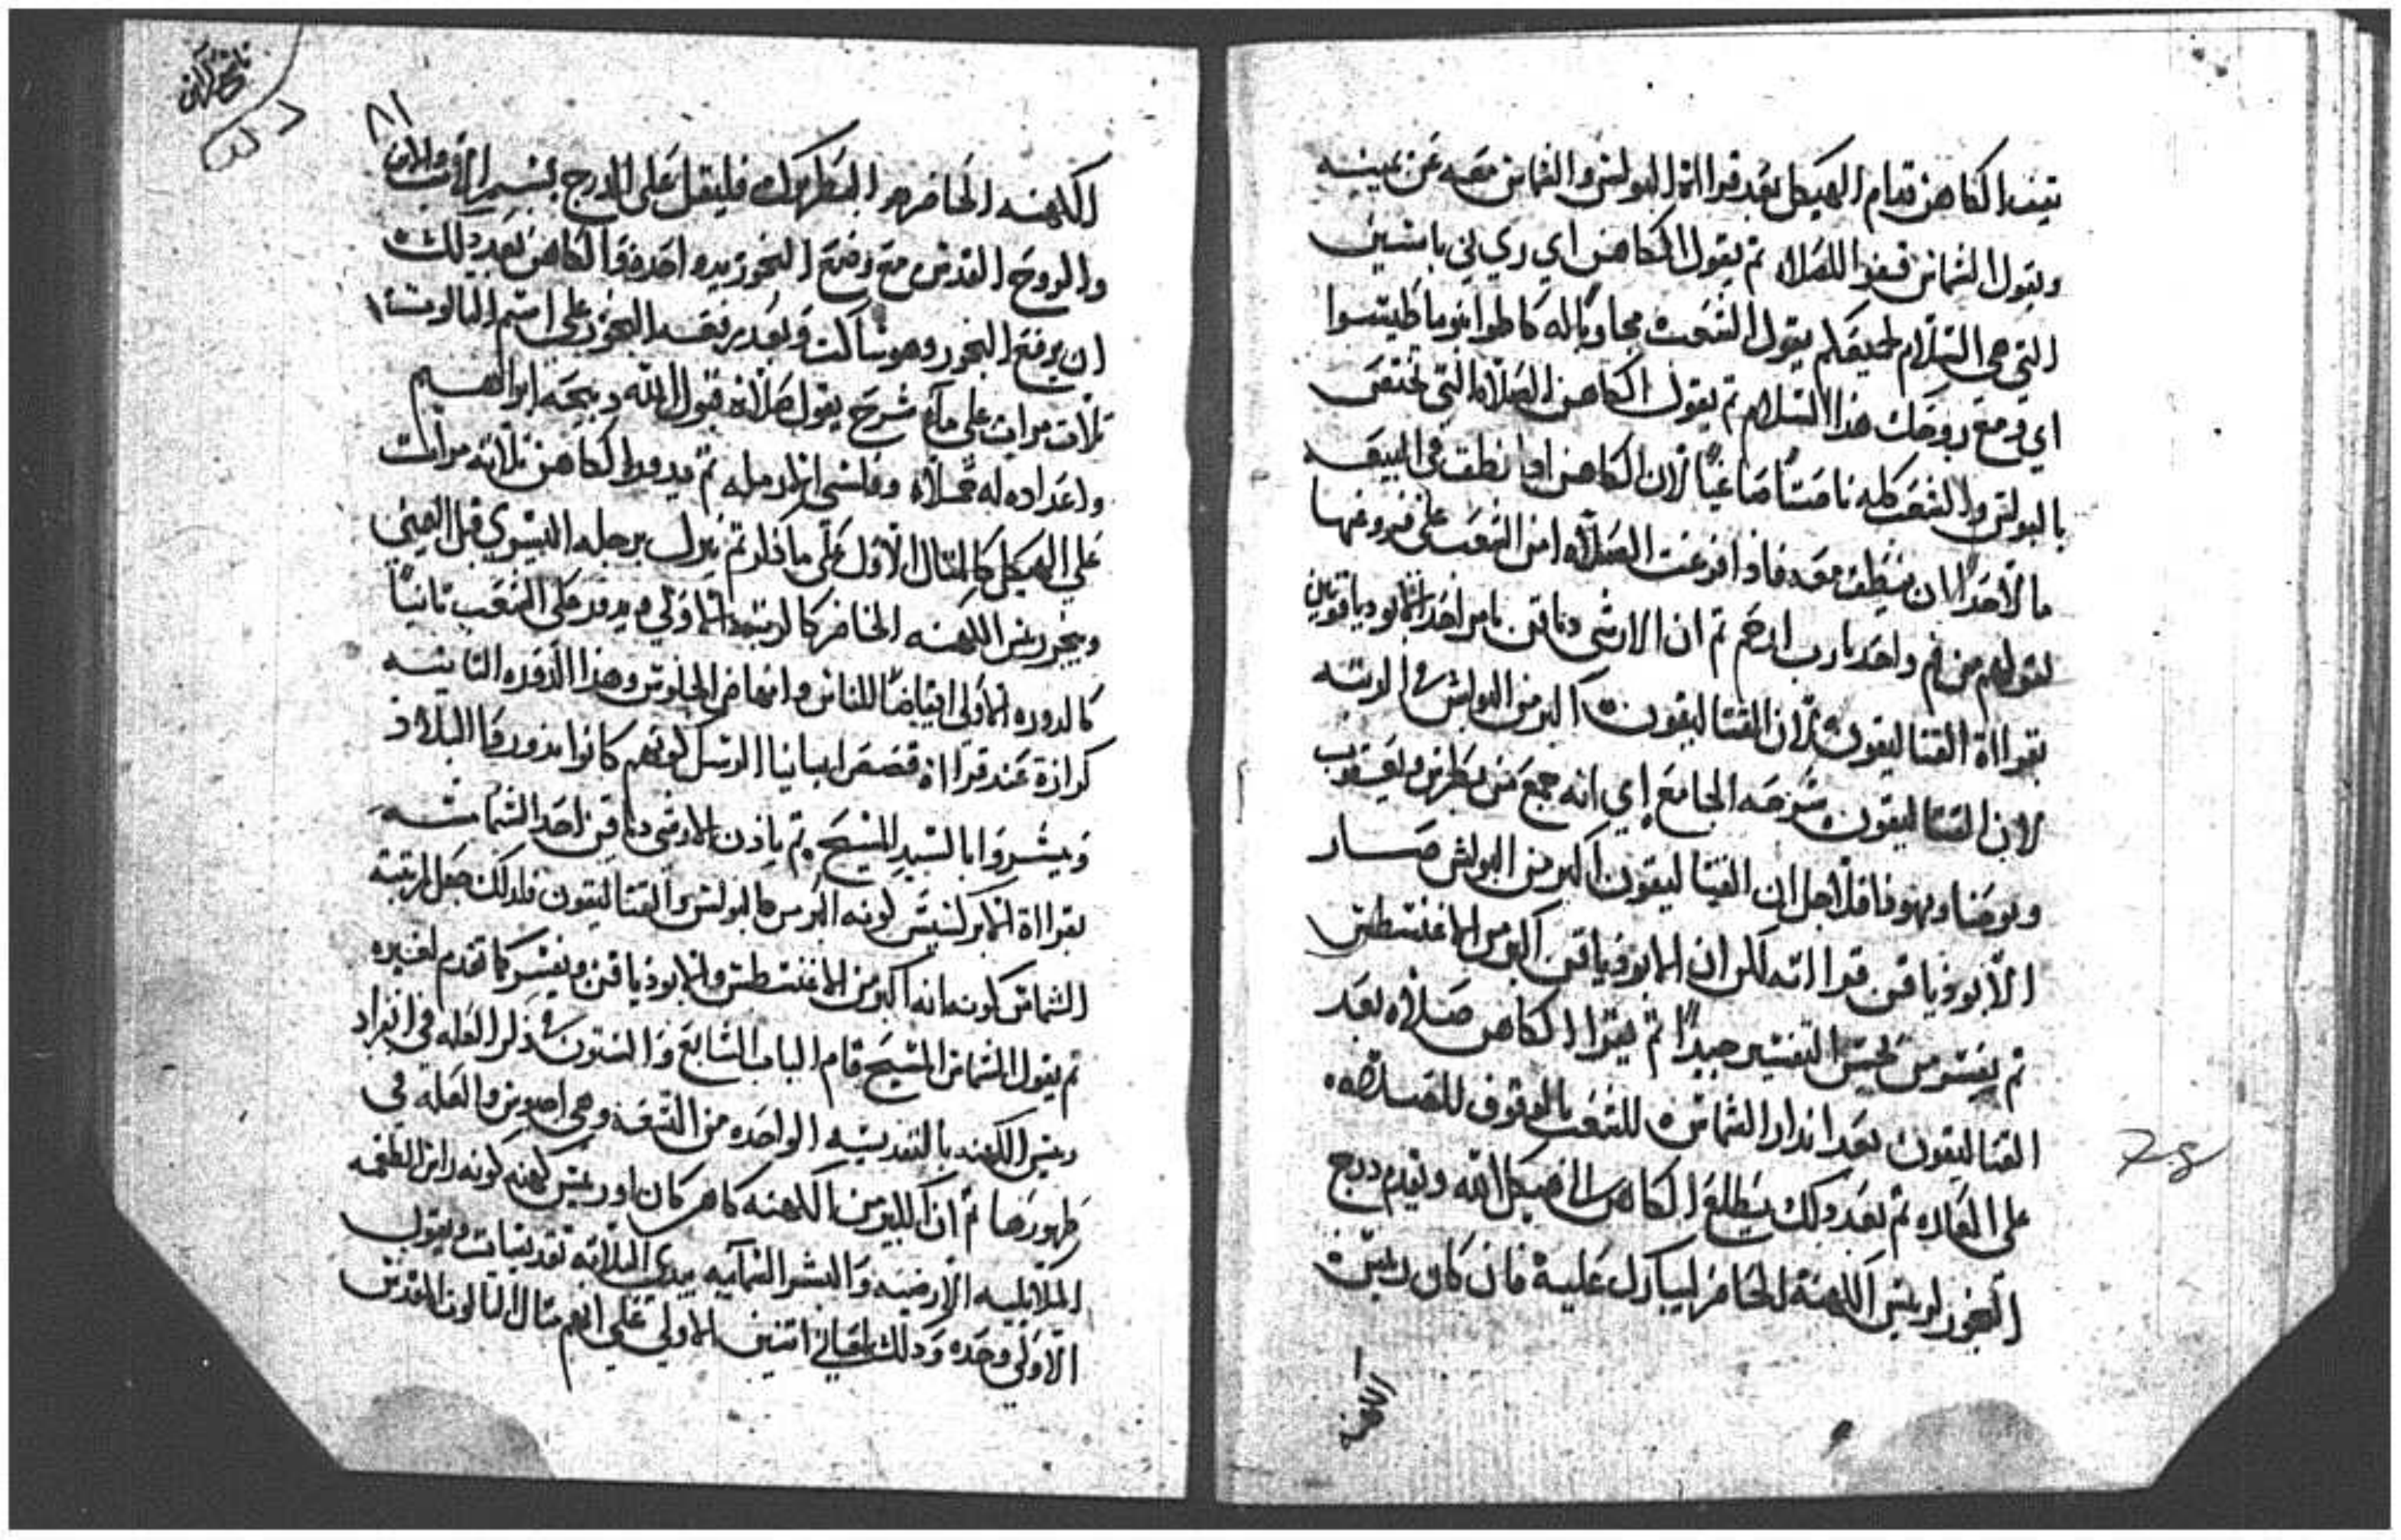 يقف الكاهن قدام الهيكل بعد قرااة البولس والشماس معه عن يمينه
ويقول الشماس قفوا للصلاه ثم يقول الكاهن اي ري ني باسين
التي هي السلام لجميعكم يقول الشعب مجاوباً له كاطوا ابنوماطيتسوا
اي ومع روحك هذا السلام ثم يقول الكاهن الصلاه التي تختص
بالبولس والشعب كله نامتاً صاغياً لان الكاهن اذا نطق في البيعه
ما لاحداً ان ينطق معه فاذا فرغت الصلاه امن الشعب على فروغها
لقولهم من فم واحد يارب ارحم ثم ان الارشي دياقن يامر احد الابودياقونين
بقرااة القتاليقون لان القتاليقون اكبر من البولس في الرتبه
لان القتاليقون شرحه الجامع اي انه جمع من بطرس ويعقوب
ويوحنا ويهوذا فلاجل ان القتاليقون اكبر من البولس صار
الابودياقن قرااته لكن ان الابودياقن اكبر من الاغنسطس
ثم يفسر من يحسن التفسير جيداً ثم يقرا الكاهن صلاه بعد
القتاليقون بعد اندار الشماس للشعب بالوقوف للصلاه
على العاده ثم بعد ذلك يطلع الكاهن الى هيكل الله ويقدم درج
البخور لريس الكهنة الحاضر ليبارك عليه فان كان ريس
الكهنه
٨١
الكهنه الحاضر هو البطريرك فليقل على الدرج بسم الاب والابن
والروح القدس مع وضع البخور بيده واحده والكاهن بعد ذلك
ان يرفع البخور وهو ساكت وبعد يرفعه البخور على اسم التالوت
ثلاث مرات على ما شرح يقول صلاة قبول الله دبيحة ابراهيم
واعداده له ثم يدور الكاهن ثلاثه مرات
على الهيكل كالمثال الاول على ما قلد ثم ينزل برجله اليسرى قبل اليمنى
ويبخر ريس الكهنه الحاضر كالرتبه الاولى ويدور على الشعب ثانياً
كالدوره الاولى ايقاضاً للناس وانهاض الجلوس وهذا الدوره الثانيه
كرازة عند قرااة قصص ابهاتنا الرسل كونهم كانوا يدوروا البلاد
ويبشروا بالسيد المسيح ثم ياذن الارشي دياقن لاحد الشمامسه
بقرااة الابركسيس كونه اكبر من البولس والقتاليقون فلذلك جعل لرتبة
الشماس كونه انه اكبر من الاغنسطس والابودياقن ويفسر كما تقدم لغيره
ثم يقول الشماس المسيح قام الباب السابع والستون في ذكر العله في انفراد
ريس الكهنه بالتقديسه الواحده من التسعه وهي اجيوس والعله في
ظهورها ثم ان الكبير من الكهنه كاهن كان او ريس كهنه كونه راس الطغمه
الملايكيه الارضيه والبشر السمايه يبدي الثلاثه تقديسات ويقول
الاولى وحده وذلك لمعاني اثنين الاولى على انهم مثال التالوت القدس